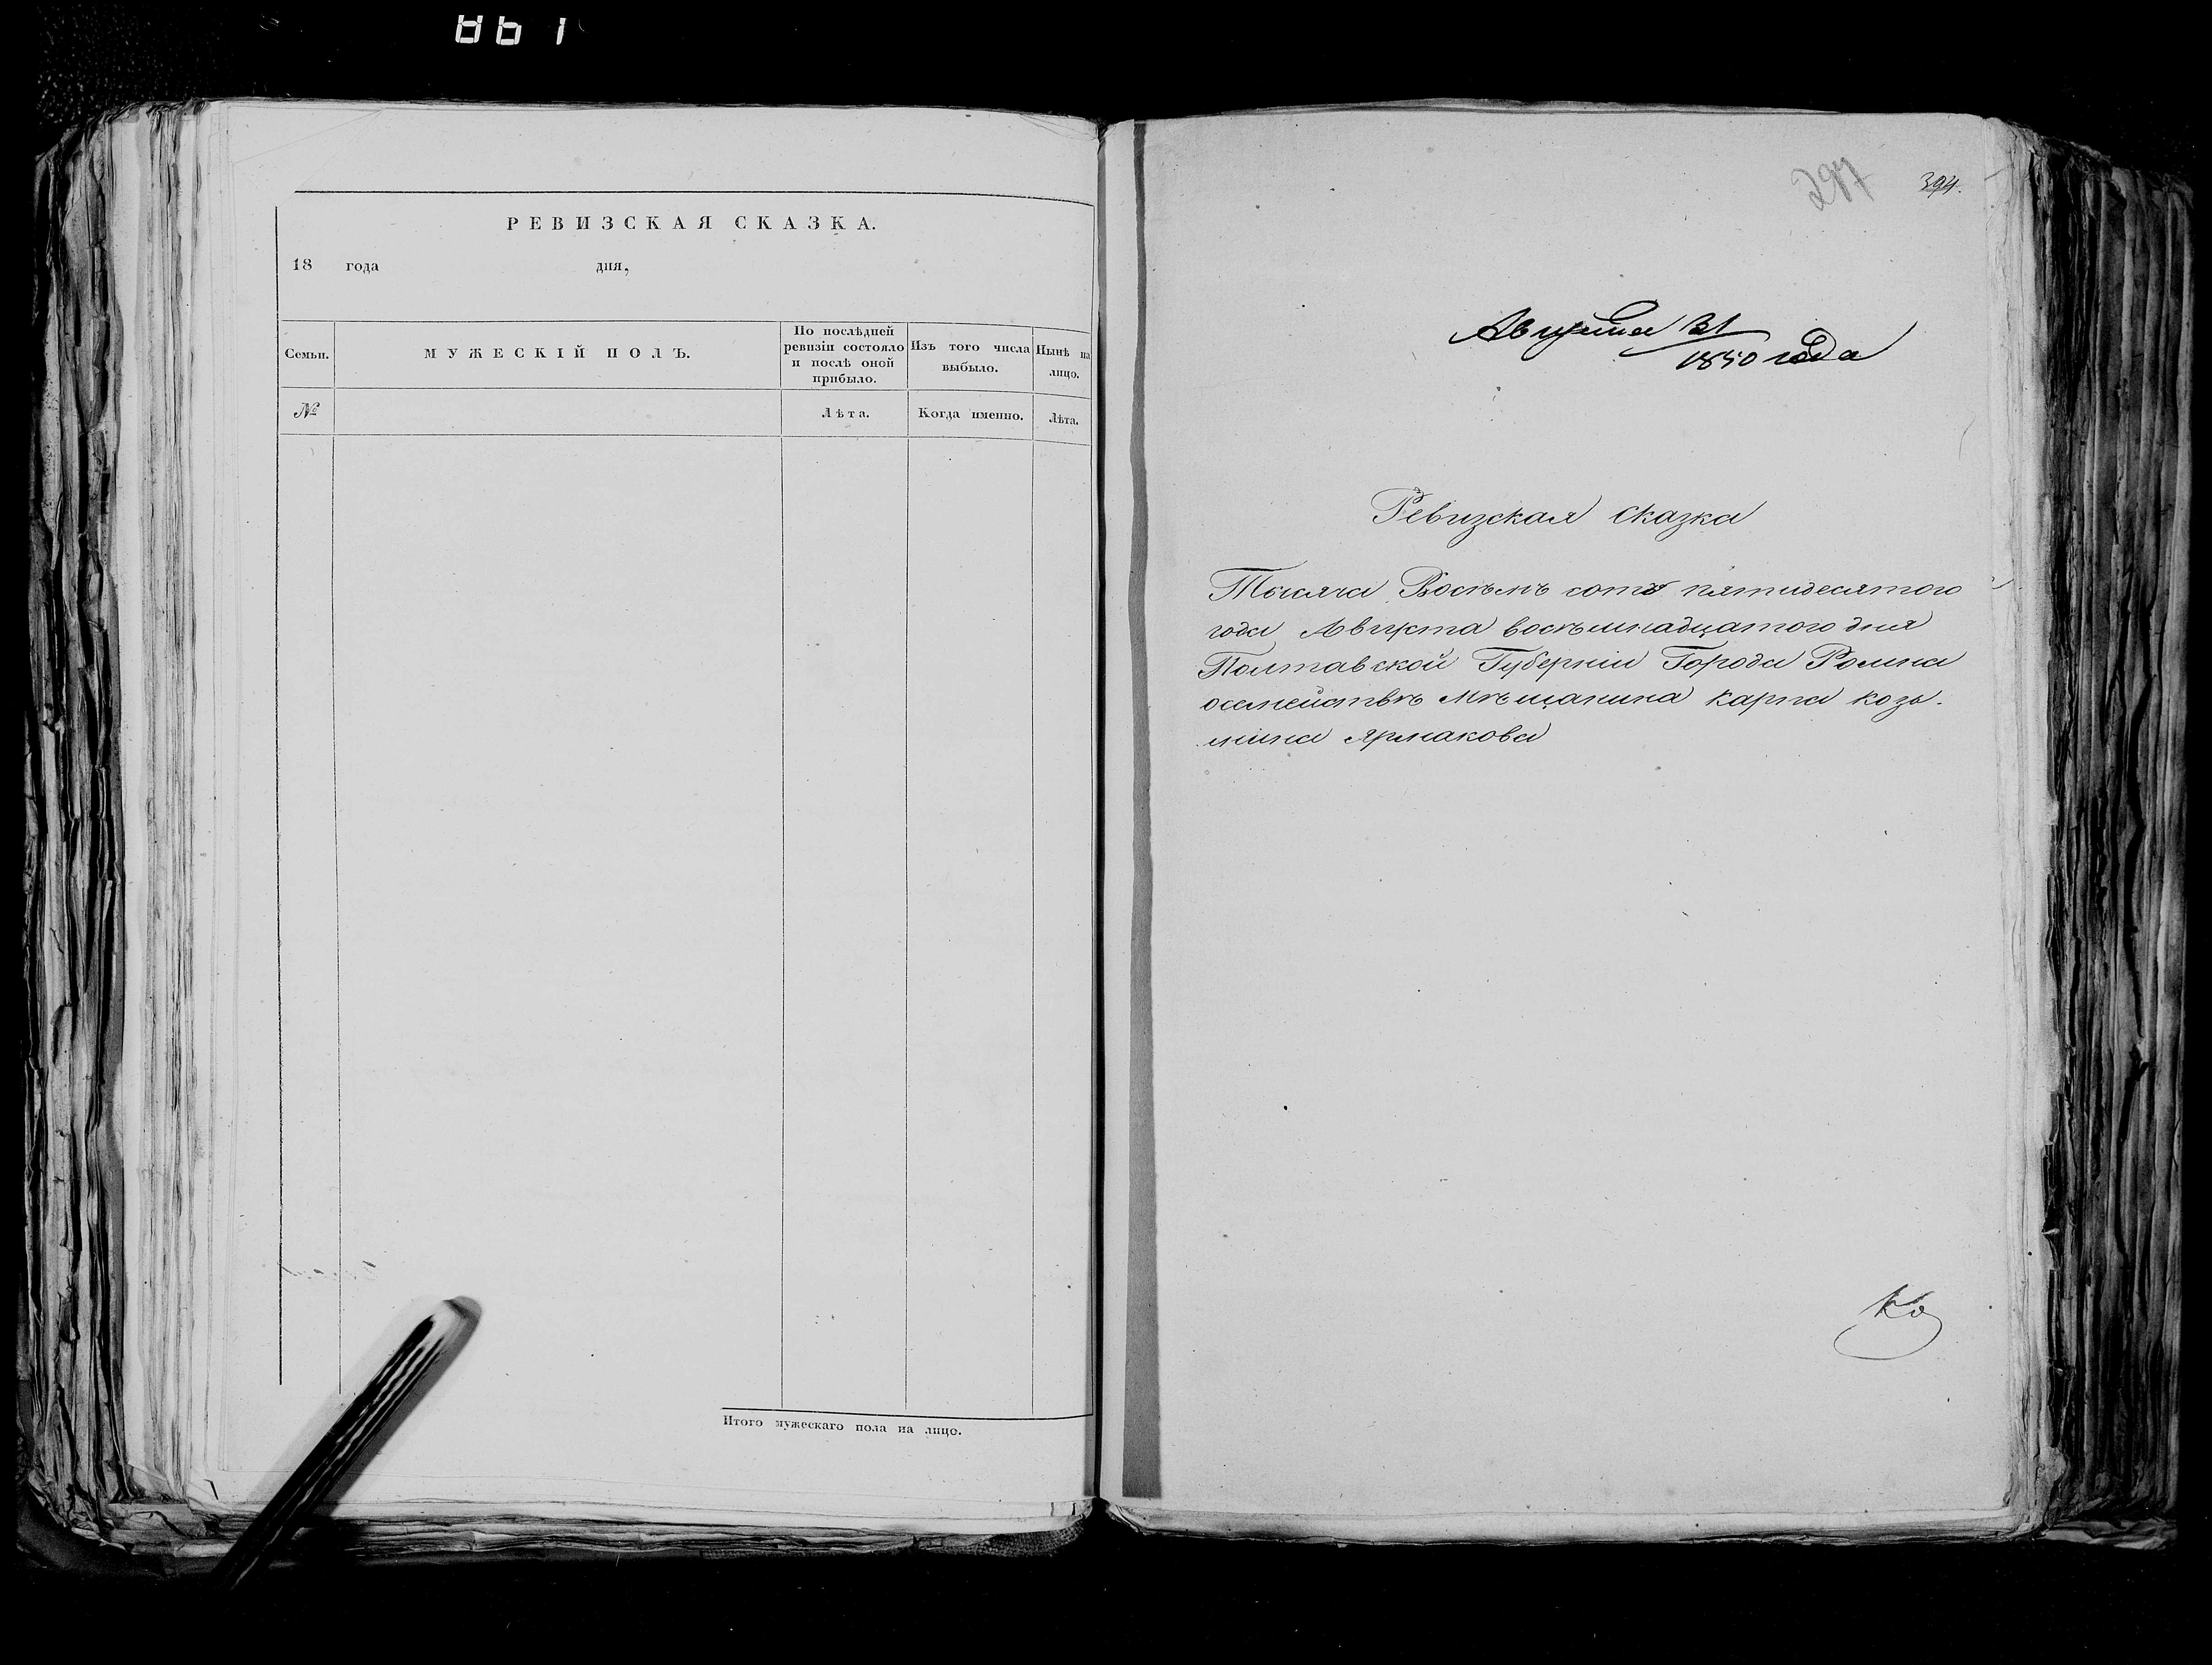 РЕВИЗСКАЯ СКАЗКА.
18 года дня,
Семьи.
МУЖЕСКІЙ ПОЛЪ.
По послѣдней
ревизіи состояло
и послѣ оной
прибыло.
Изъ того числа
выбыло.
Нынѣ на
лицо.
№
Лѣта.
Когда именно.
Лѣта.
Итого мужескаго пола на лицо.
297
394.
Августа 31
1850 года
Ревизская сказка
Тысяча Восѣмъ сотъ пятидесятого
года Августа восѣмнадцатого дня
Полтавской Губерніи Города Ромна
осемействѣ Мѣщанина Карпа Козь-
мина Ярмакова
Ко